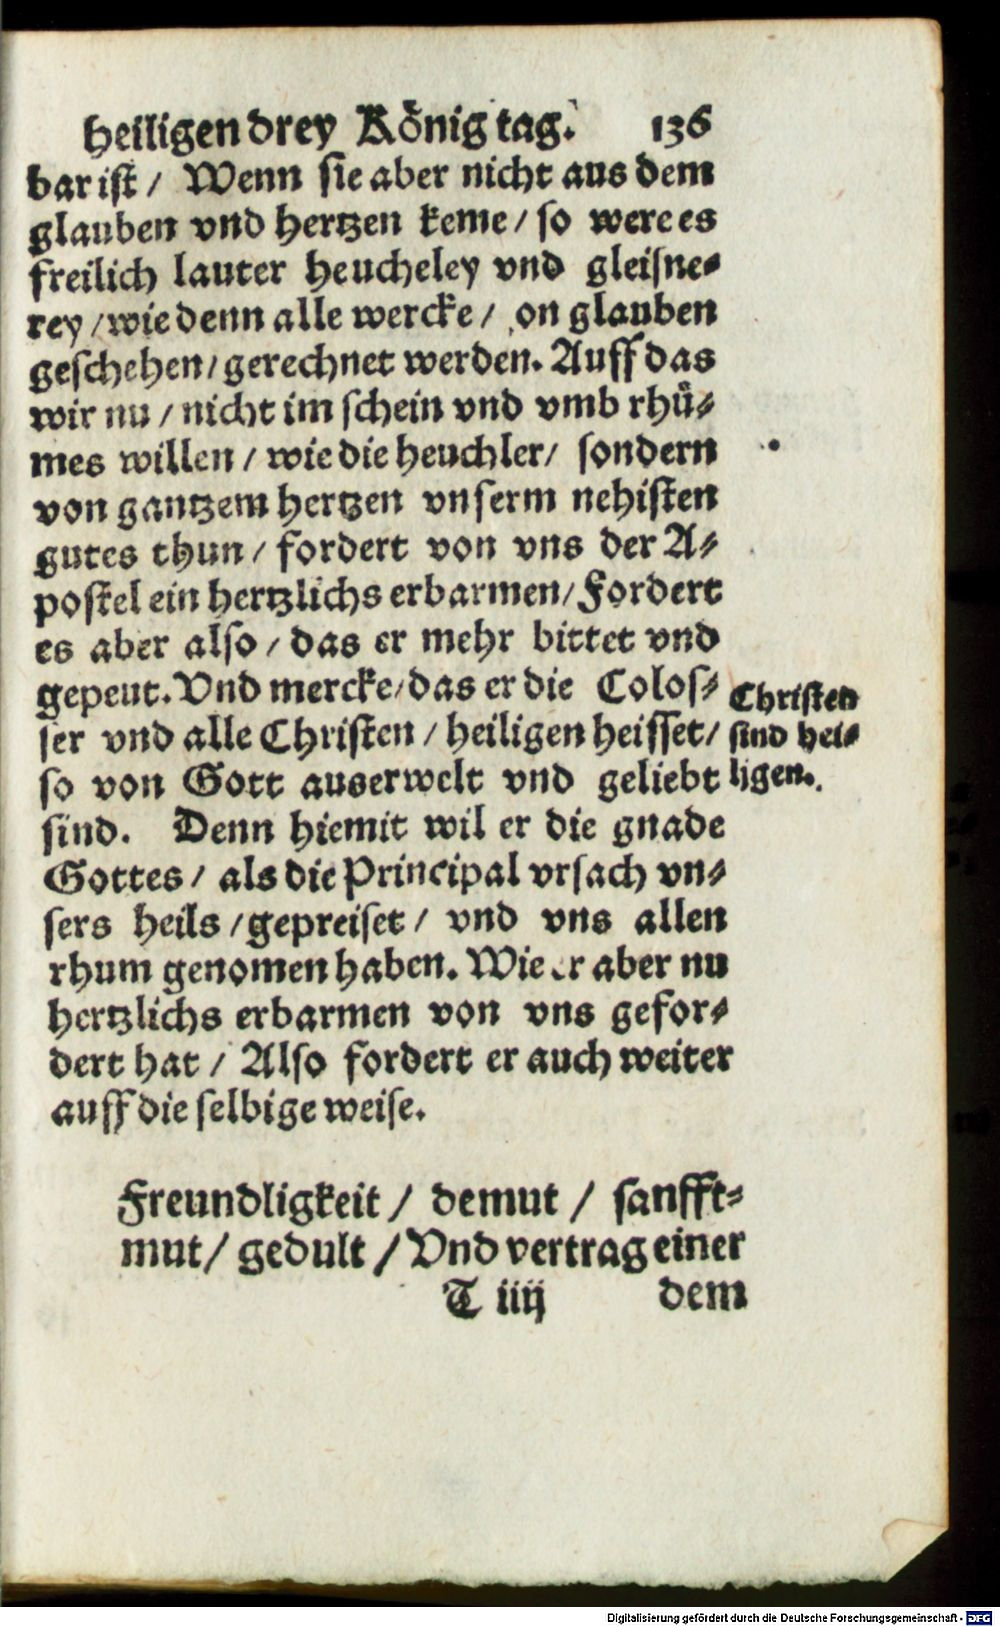 heiligen drey König tag. 136
bar ist / Wenn sie aber nicht aus dem
glauben vnd hertzen keme / so were es
freilich lauter heucheley vnd gleisne⸗
rey / wie denn alle wercke / on glauben
geschehen / gerechnet werden. Auff das
wir nu / nicht im schein vnd vmb rhuͤ⸗
mes willen / wie die heuchler / sondern
von gantzem hertzen vnserm nehisten
gutes thun / fordert von vns der A⸗
postel ein hertzlichs erbarmen / Fordert
es aber also / das er mehr bittet vnd
gepeut. Vnd mercke / das er die Colos⸗
ser vnd alle Christen / heiligen heisset /
so von Gott auserwelt vnd geliebt
sind. Denn hiemit wil er die gnade
Gottes / als die Principal vrsach vn⸗
sers heils / gepreiset / vnd vns allen
rhum genomen haben. Wie er aber nu
hertzlichs erbarmen von vns gefor⸗
dert hat / Also fordert er auch weiter
auff die selbige weise.
Christen
sind hei⸗
ligen.
Freundligkeit / demut / sanfft⸗
mut / gedult / Vnd vertrag einer
T iiij dem
Digitalisierung gefördert durch die Deutsche Forschungsgemeinschaft - DFG